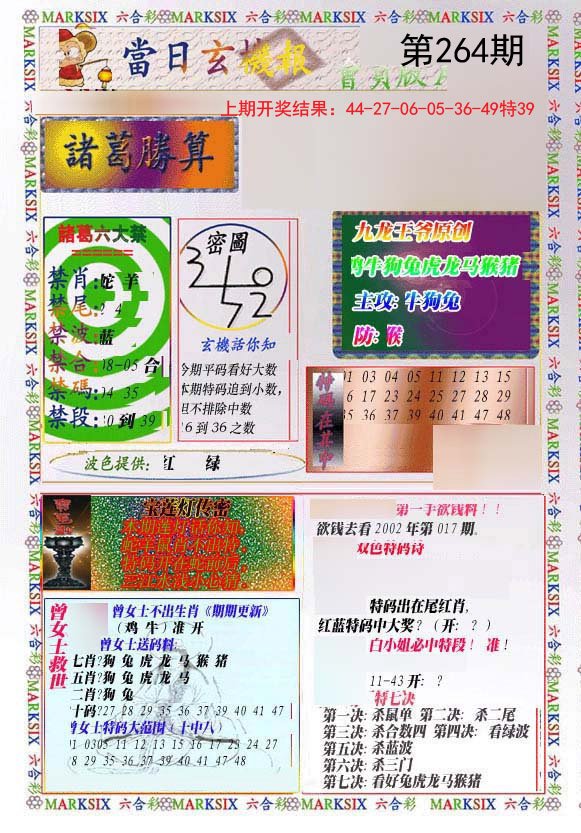 MARKSIX 六合彩 MARKSIX 六合彩 MARKSIX 六合彩 MARKSIX 六合彩
當日玄機报
第264期
上期开奖结果：44-27-06-05-36-49特39
諸葛勝算
諸葛六大禁
禁肖:蛇 羊
禁尾:? 4
禁波:蓝
禁合:08-05 合
禁碼:04 35
禁段:30到39
密圖
玄機話你知
今期平码看好大数
本期特码追到小数,
但不排除中数
16到36之数
九龙王爷原创
鸡牛狗兔虎龙马猴猪
主攻: 牛狗兔
防: 猴
特码在其中
01 03 04 05 11 12 13 15
16 17 23 24 25 27 28 29
35 36 37 39 40 41 47 48
波色提供: 红 绿
宝莲灯传密
第一手欲钱料！！
欲钱去看2002年第017期。
双色特码诗
特码出在尾红肖,
红蓝特码中大奖?（开: ？）
白小姐必中特段！ 准！
11-43 开: ？
特七决
第一决: 杀鼠单 第二决: 杀二尾
第三决: 杀合数四 第四决: 看绿波
第五决: 杀蓝波
第六决: 杀三门
第七决: 看好兔虎龙马猴猪
曾女士救世
曾女士不出生肖《期期更新》
（鸡 牛）准 开
曾女士送码料:
七肖?狗 兔 虎 龙 马 猴 猪
五肖?兔 虎 龙 马
二肖?狗 兔
十码?27 28 29 35 36 37 39 40 41 47
曾女士特码大范围（十中八）
01 0305 11 12 13 15 16 17 23 24 27
28 29 35 36 37 39 40 41 47 48
MARKSIX 六合彩 MARKSIX 六合彩 MARKSIX 六合彩 MARKSIX 六合彩